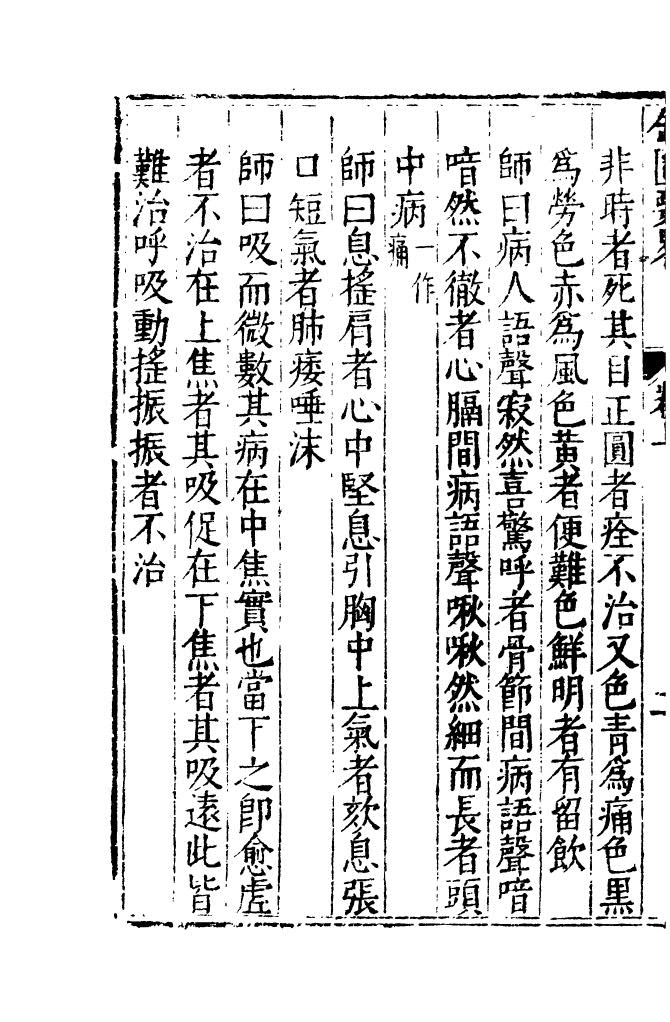 非時者死其目正圓者痓不治又色青爲痛色黑
爲勞色赤爲風色黃者便難色鮮明者有留飲
師曰病人語聲寂然喜驚呼者骨節間病語聲喑
喑然不徹者心膈間病語聲啾啾然細而長者頭
中病一作痛
師曰息搖肩者心中堅息引胸中上氣者欬息張
口短氣者肺痿唾沫
師曰吸而微數其病在中焦實也當下之卽愈虛
者不治在上焦者其吸促在下焦者其吸遠此皆
難治呼吸動搖振振者不治